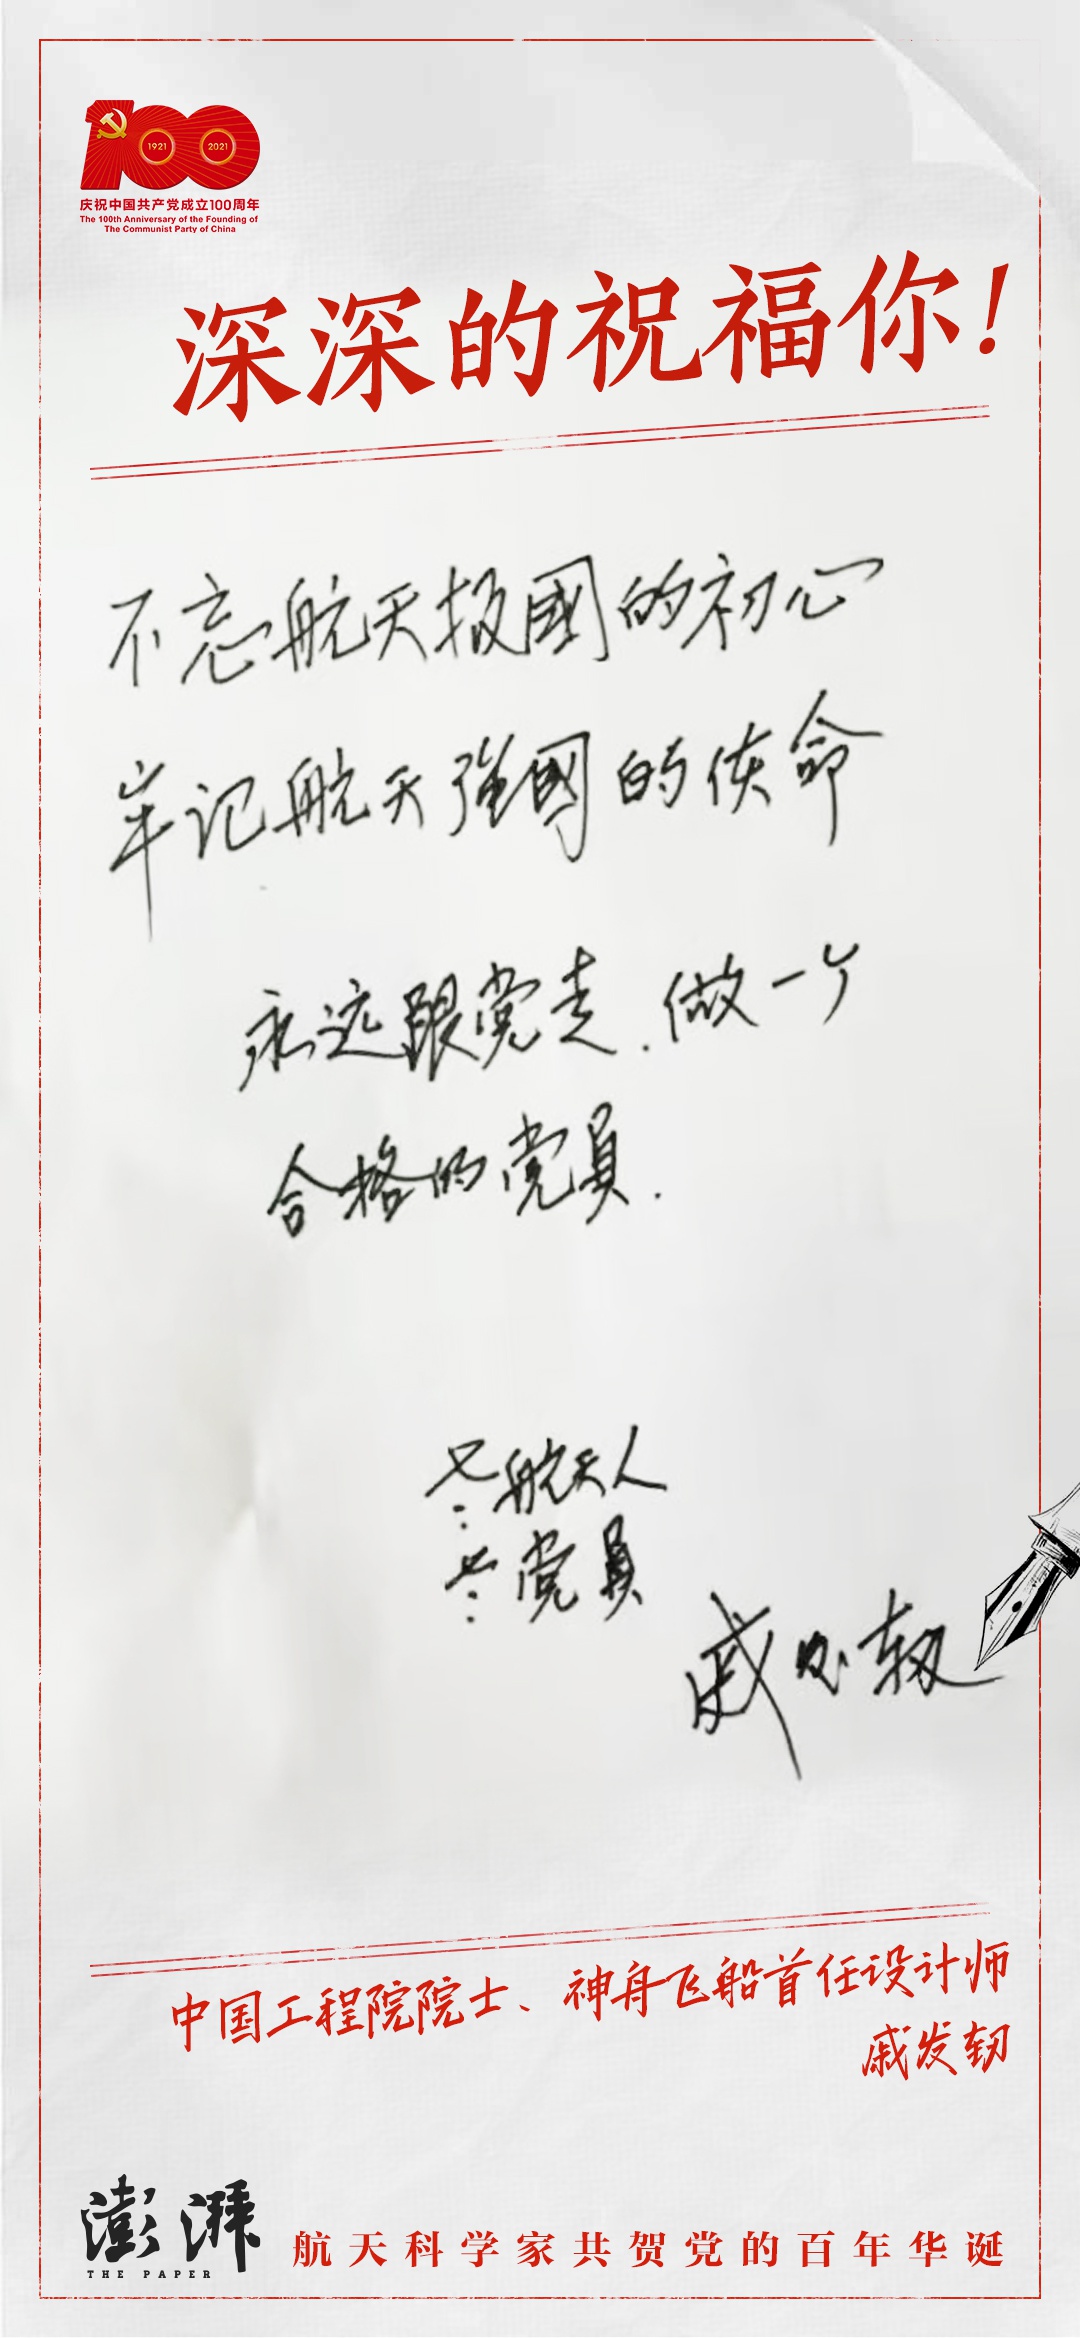 1921 2021
庆祝中国共产党成立100周年
The 100th Anniversary of the Founding of
The Communist Party of China
深深的祝福你!
不忘航天报國的初心
牢记航天强國的使命
永远跟党走.做一个
合格的党员.
老航天人
老党员
戚发轫
中国工程院院士、神舟飞船首任设计师
戚发轫
澎湃
THE PAPER
航天科学家共贺党的百年华诞